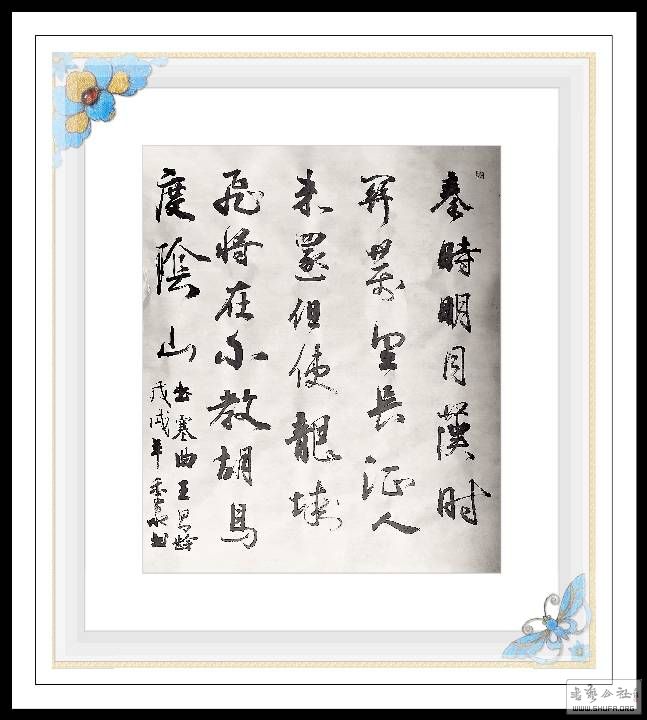 秦時明月漢时
関萬里長征人
未還但使龍城
飛将在不教胡馬
度陰山
出塞曲王昌齡
戊戌年
书艺公社
WWW.SHUFA.ORG